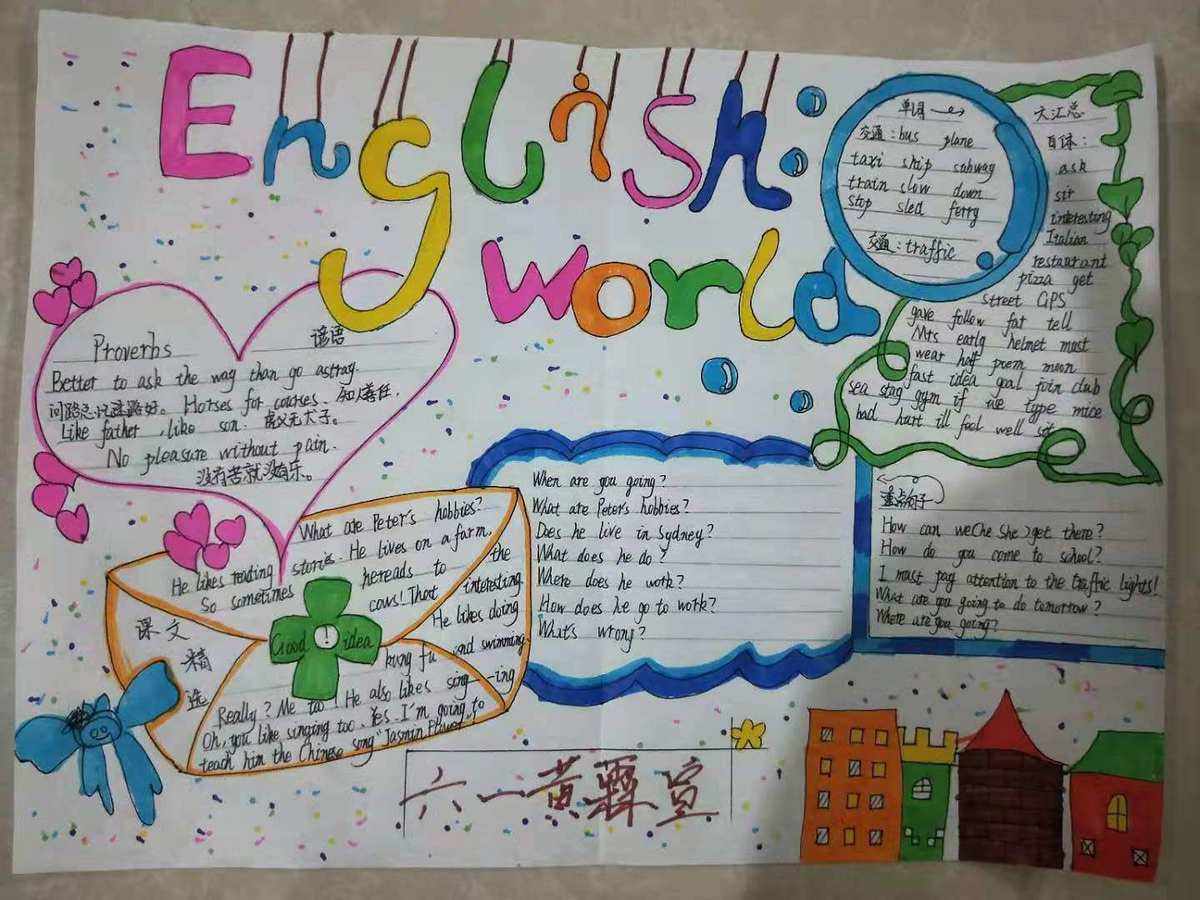 English
world
单词
交通：bus plane
taxi ship subway
train slow down
stop sled ferry
交通：traffic
大汇总
ask
sir
interesting
Italian
restaurant
pizza get
street GPS
gave follow far tell
Mrs early helmet must
wear half poem moon
fast idea goal join club
sea stag gym if we type mice
bad hurt ill feel well sit
Proverbs 谚语
Better to ask the way than go astray.
问路总比迷路好。Horses for courses. 知人善任.
Like father ,like son. 虎父无犬子。
No pleasure without pain.
没有苦就没有乐。
What are Peter's hobbies?
He likes reading stories. He lives on a farm,
So sometimes hereads to the
cows! That interesting
He likes doing
kung fu and swimming
Good ! idea
课文
精
选
Really? Me too! He also likes sing-ing
Oh, you like singing too. Yes. I'm going to
teach him the Chinese song "Jasmin
When are you going?
What are Peter's hobbies?
Does he live in Sydney?
What does he do?
Where does he work?
How does he go to work?
What's wrong?
重点句子
How can we(he she)get there?
How do you come to school?
I must pag attention to the traffic lights!
What are you going to do tomorrow?
Where are you going?
六一黄霖宣